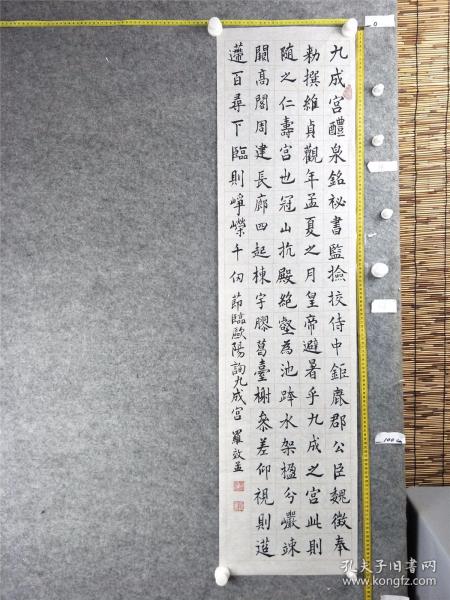 九成宫醴泉銘祕書監撿挍侍中鉅鹿郡公臣魏徵奉
勑撰維貞觀年孟夏之月皇帝避暑乎九成之宫此則
随之仁壽宫也冠山抗殿絶壑為池跨水架楹分巖竦
闕高閣周建長廊四起棟宇膠葛臺榭參差仰視則迢
遰百尋下臨則崢嶸千仞 節臨歐陽詢九成宫 羅效孟
孔夫子旧书网
www.kongfz.com